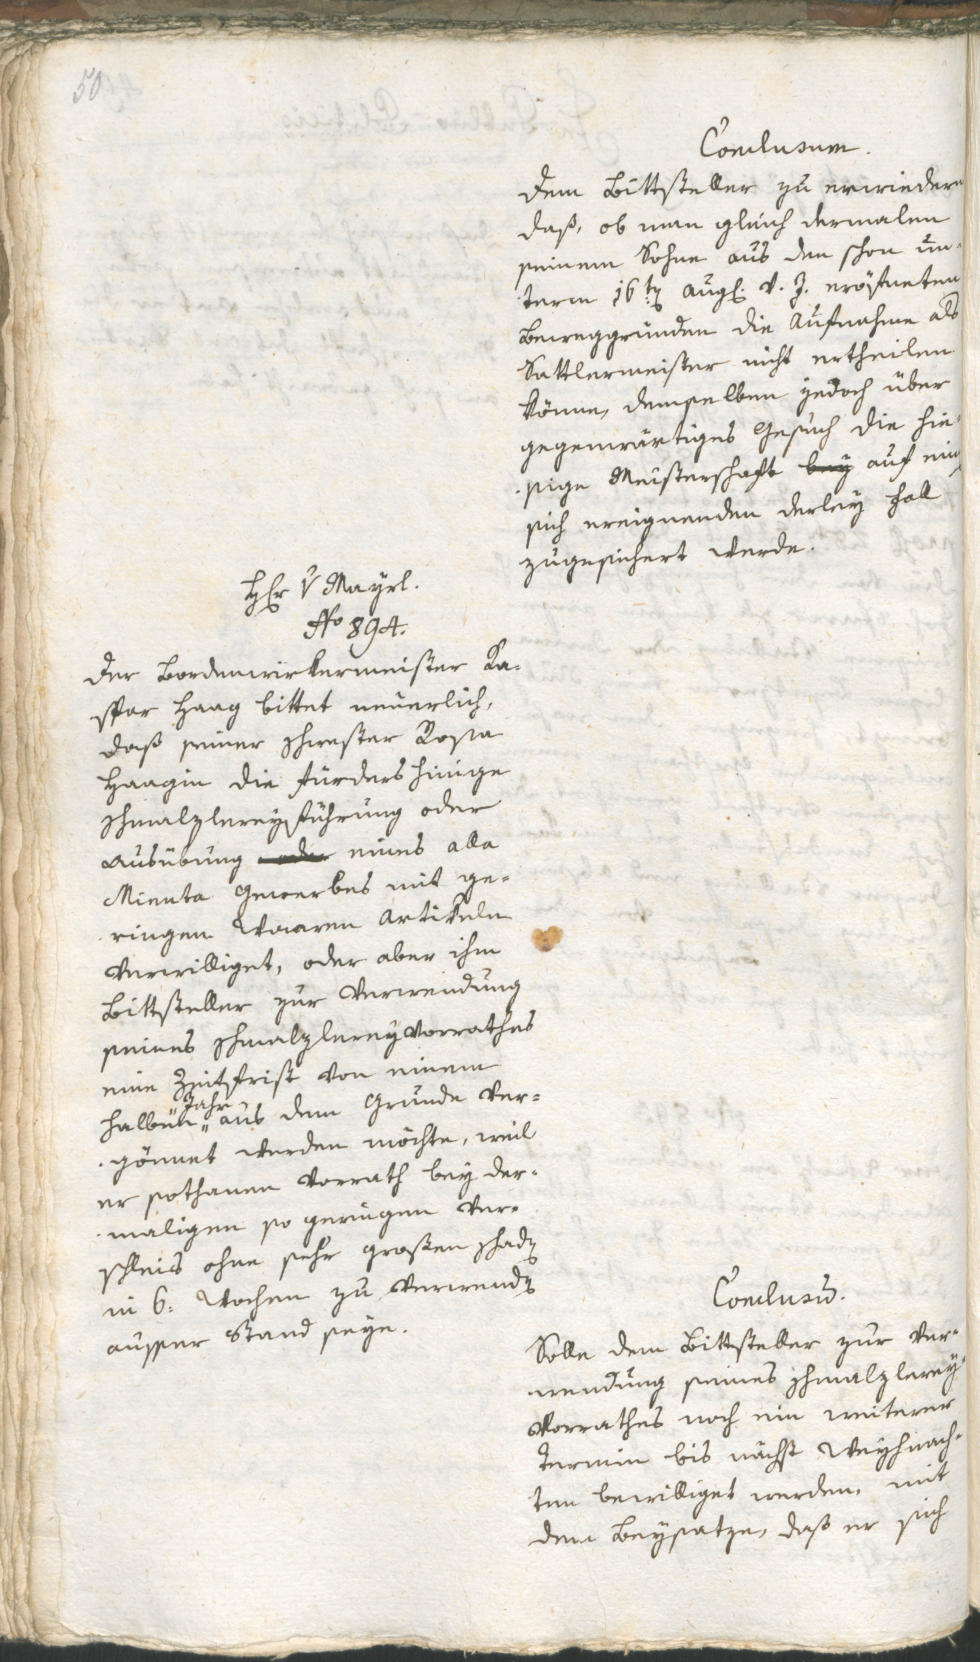 50
Conclusum.
Dem Bittsteller zu erwiedern
daß, ob man gleich dermalen
seinem Sohne aus den schon un-
term 16ten Augs. v. J. eröfneten
Beweggründen die Aufnahme als
Sattlermeister nicht ertheilen
könne, demselben jedoch über
gegenwärtiges Gesuch die hie-
sige Meisterschaft bey auf ein
sich ereignenden derley Fall
zugesichert werde.
Hr v Mayrl.
No 894.
Der Bordenwirkermeister Ka-
spar Haag bittet neuerlich,
daß seiner Schwester Rosa
Haagin die fürdershinige
Schmalzlereyführung oder
Ausübung oder eines alla
Minuta Gewerbes mit ge-
ringen Waaren Artikeln
verwilliget, oder aber ihm
Bittsteller zur Verwendung
seines Schmalzlerey Vorrathes
eine Zeitfrist von einem
halben Jahr aus dem Grunde ver-
gönnet werden möchte, weil
er sothanen Vorrath bey der-
maligen so geringen Ver-
schleis ohne sehr großen Schaden
in 6. Wochen zu verwenden
ausser Stand seye.
Conclusum.
Solle dem Bittsteller zur Ver-
wendung seines Schmalzlerey
Vorrathes noch ein weiterer
Termin bis nächst Weyhnach-
ten bewilliget werden, mit
dem Beysatze, daß er sich